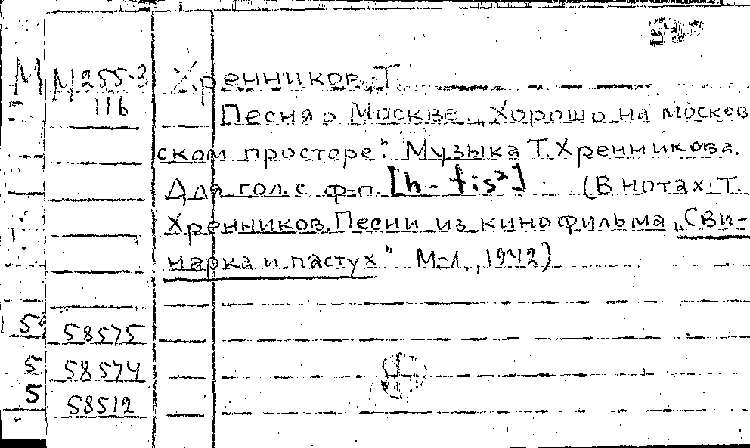 М М 255-3 Хренников, Т.
116 Песня о Москве „Хорошо на москов
ском просторе". Музыка Т. Хренникова.
Для гол. с ф-п. [h - fis²] (В нотах: Т.
Хренников. Песни из кинофильма „Сви-
нарка и пастух" М-Л., 1942)
58575
58574
58512